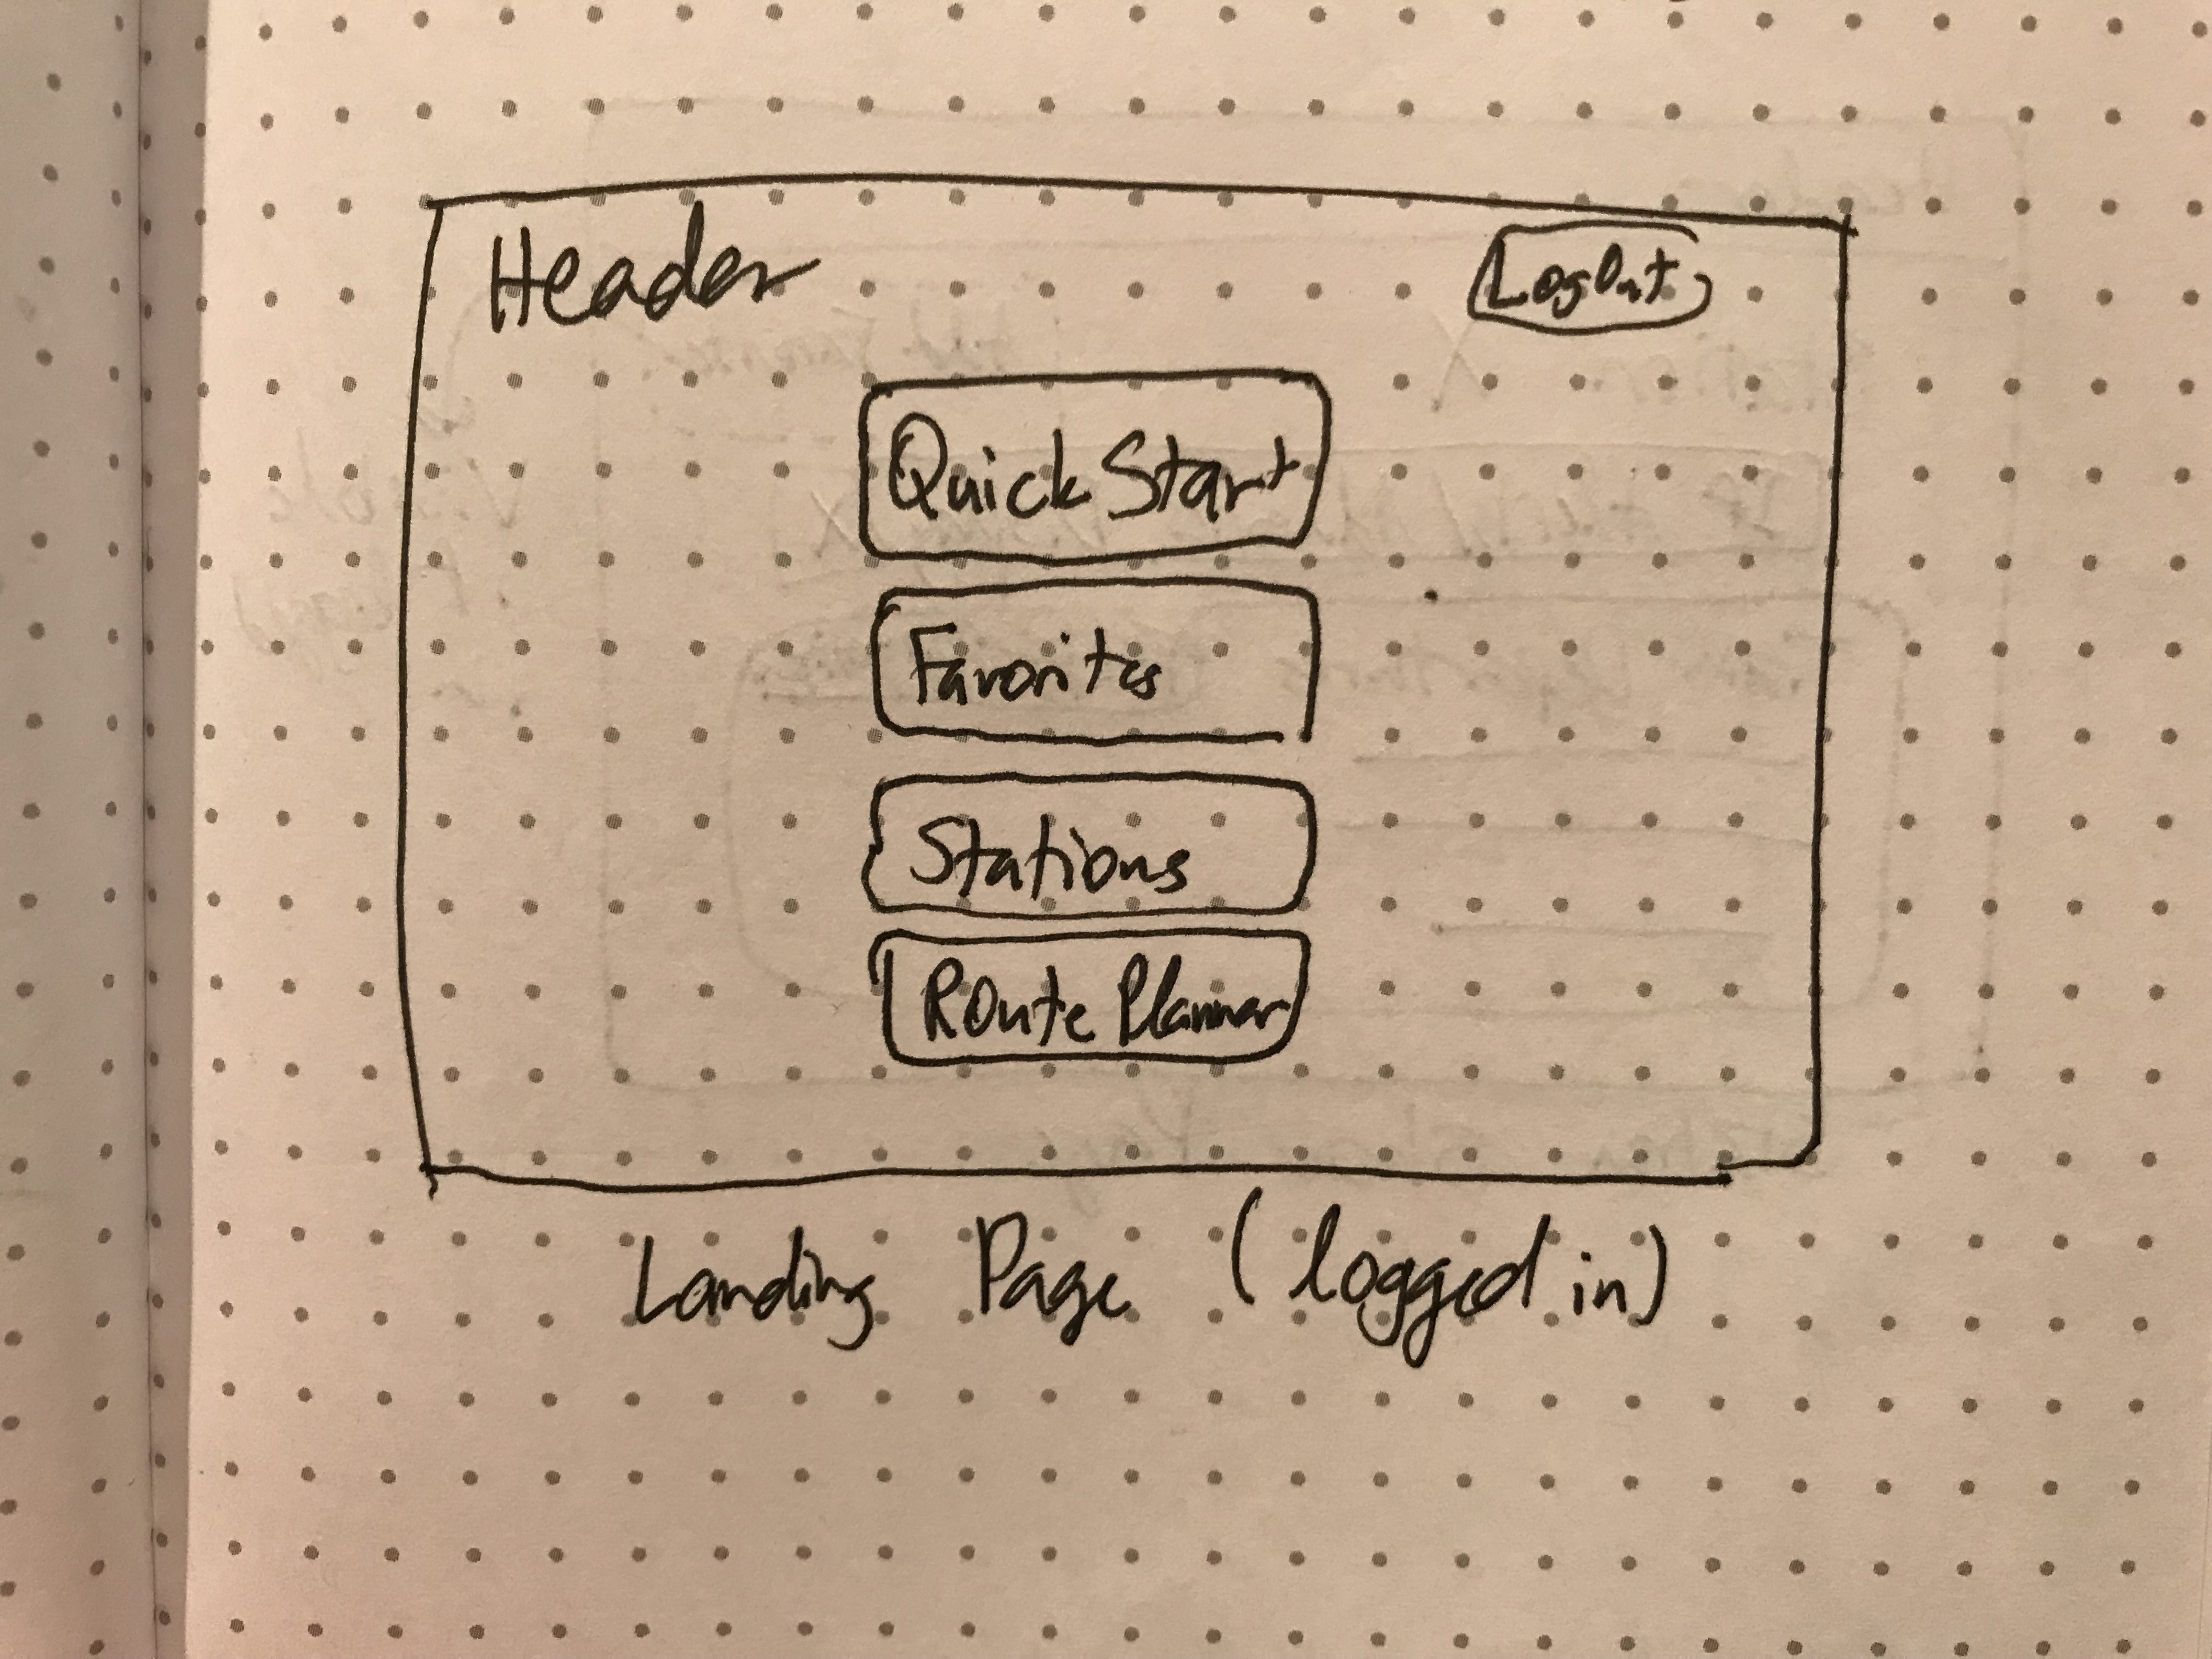 Header LogOut
Quick Start
Favorites
Stations
Route Planner
Landing Page (logged in)